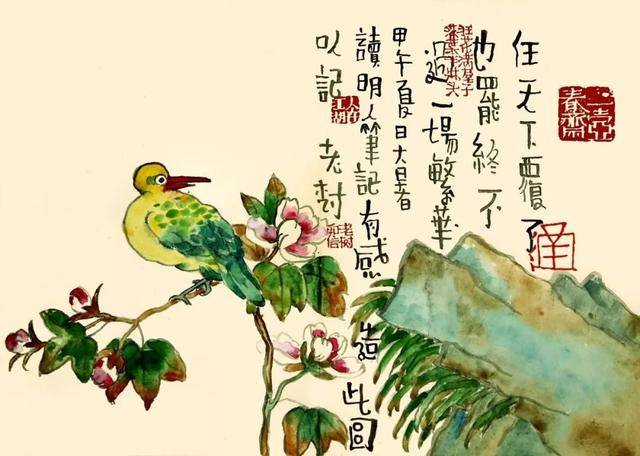 任天下覆了
也罷終不
過一場繁華
甲午夏日大暑
讀明人筆記有感 造此圖
以記 老村
人在江湖